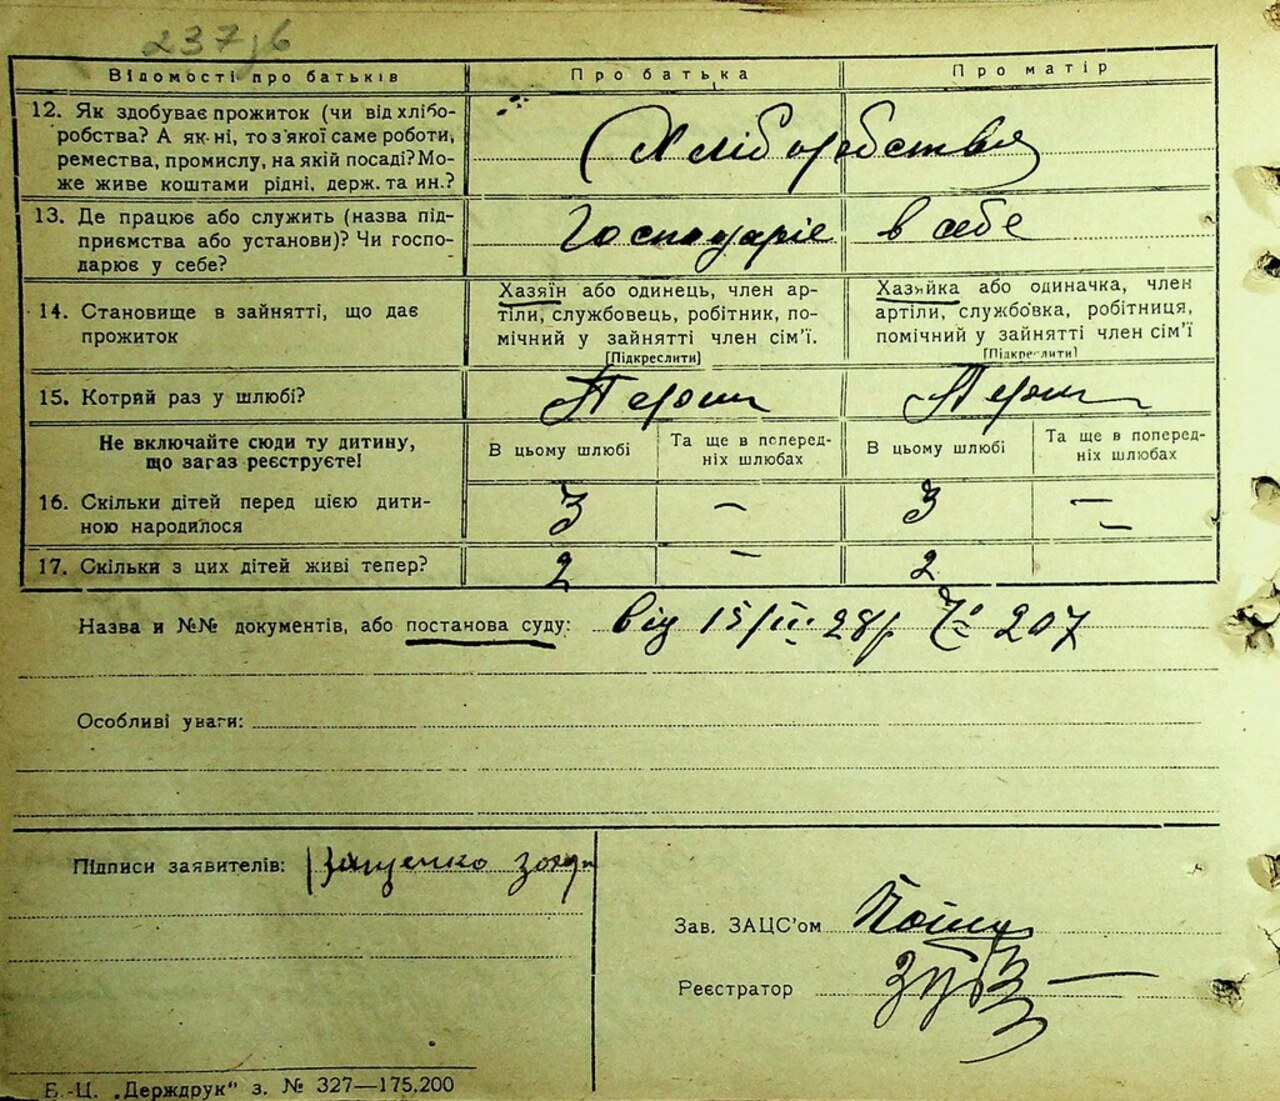 Відомості про батьків Про батька Про матір
12. Як здобуває прожиток (чи від хлібо-
робства? А як-ні, то з'якої саме роботи,
ремества, промислу, на якій посаді? Мо-
же живе коштами рідні, держ. та ин.?
Хліборобства
13. Де працює або служить (назва під-
приємства або установи)? Чи госпо-
дарює у себе?
Господаріє в себе
14. Становище в зайнятті, що дає
прожиток
Хазяїн або одинець, член ар-
тіли, службовець, робітник, по-
мічний у зайнятті член сім'ї.
[Підкреслити]
Хазяйка або одиначка, член
артіли, службовка, робітниця,
помічний у зайнятті член сім'ї
[Підкреслити]
15. Котрий раз у шлюбі? Перши Перши
Не включайте сюди ту дитину,
що загаз реєструєте!
В цьому шлюбі
Та ще в поперед-
ніх шлюбах
В цьому шлюбі
Та ще в поперед-
ніх шлюбах
16. Скільки дітей перед цією дити-
ною народилося
3 — 3 —
17. Скільки з цих дітей живі тепер? 2 — 2 —
Назва и №№ документів, або постанова суду: від 15/III 28р № 207
Особливі уваги:
Підписи заявителів:
Зав. ЗАЦС'ом
Реєстратор
Б.-Ц. „Держдрук" з. № 327—175.200